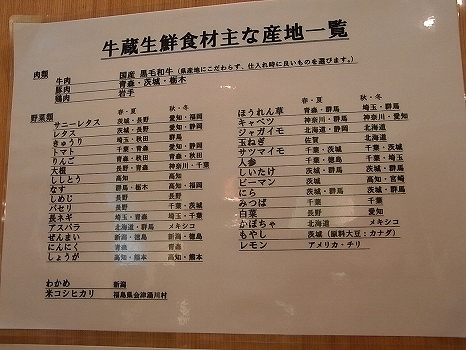 牛蔵生鮮食材主な産地一覧
肉類
牛肉 国産 黒毛和牛（県産地にこだわらず、仕入れ時に良いものを選びます。）
豚肉 青森・茨城・栃木
鶏肉 岩手
野菜類 春・夏 秋・冬
サニーレタス 茨城・長野 愛知・福岡
レタス 茨城・長野 愛知・静岡
きゅうり 埼玉・秋田 群馬
トマト 千葉・青森 愛知・静岡
りんご 青森・秋田 青森・秋田
大根 青森・長野 神奈川・千葉
ししとう 高知 高知
なす 群馬・栃木 高知・福岡
しめじ 長野 長野
パセリ 長野 千葉・茨城
長ネギ 埼玉・青森 埼玉・千葉
アスパラ 北海道・群馬 メキシコ
ぜんまい 新潟・徳島 新潟・徳島
にんにく 青森 青森
しょうが 高知・熊本 高知・熊本
春・夏 秋・冬
ほうれん草 群馬 埼玉・群馬
キャベツ 神奈川・群馬 神奈川・愛知
ジャガイモ 北海道・静岡 北海道
玉ねぎ 佐賀 北海道
サツマイモ 千葉・茨城 千葉・茨城
人参 千葉・徳島 千葉・埼玉
しいたけ 茨城・群馬 茨城・群馬
ピーマン 茨城 高知・宮崎
にら 茨城・群馬 茨城・群馬
みつば 千葉 千葉
白菜 長野 愛知
かぼちゃ 北海道 メキシコ
もやし 茨城（原料大豆：カナダ）
レモン アメリカ・チリ
わかめ 新潟
米コシヒカリ 福島県会津湯川村